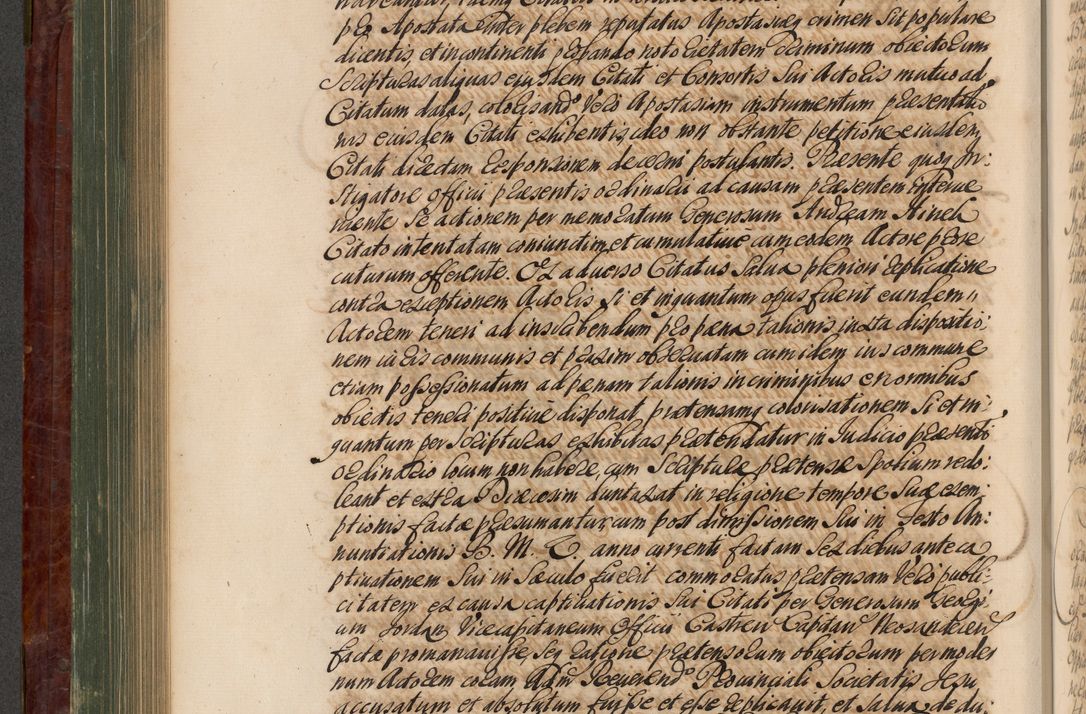 pro Apostata inter plebem reputatus Apostasiaeq crimen sit populare
dicentis, et incontinenti probando notorietatem criminum obiectorum
Scripturas aliquas eiusdem Citati et Consortis Sui Actoris mutuo ad
Citatum datas, colorisand' Vero Apostasiam instrumentum praesentatio
nis eiusdem Citati exhibentis, ideo non obstante petitione eiusdem
Citati directam Responsionem decerni postulantis. Praesente quoq In:
stigatore officii praesentis ordinarii ad causam praesentem interue
niente Se actionem per memoratum Generosum Andream
Citato intentatam coniunctim et cumulatiuè cum eodem Actore prose
cuturum offerente. Ex aduerso Citatus Salua pleniori replicatione
contra exceptionem Actoris si et inquantum opus fuerit eundem
Actorem teneri ad inscribendum pro paena talionis iuxta dispositio:
nem iuris communis et praxim obseruatam cum idem ius commune
etiam possessionatum ad paenam talionis in criminibus enormibus
obiectis teneri positiuè disponat, praetensamq colorisationem si et in:
quantum per scripturas exhibitas praetendatur in Iudicio praesenti
ordinario locum non habere, cum Scripturae praetensae Spolium redo:
leant et extra Diaecesim duntaxat in religione tempore suae exem:
ptionis factae praesumantur cum post dimissionem Sui in Festo An:
nuntiationis B. M. V. anno currenti factam Sex diebus ante ca
ptiuationem Sui in Saeculo fuerit commoratus praetensam Vero publi:
citatem ex causa captiuationis Sui Citati per Generosum
um Jordan Vicecapitaneum Officii Castren Capitan'
factae promanauisse, Sex ratione praetensorum obiectorum per moder
num Actorem coram Adm Reuerend' Prouinciali Societatis Jesu
accusatum et absolutum fuisse et esse replicauit, et Salua dedu: